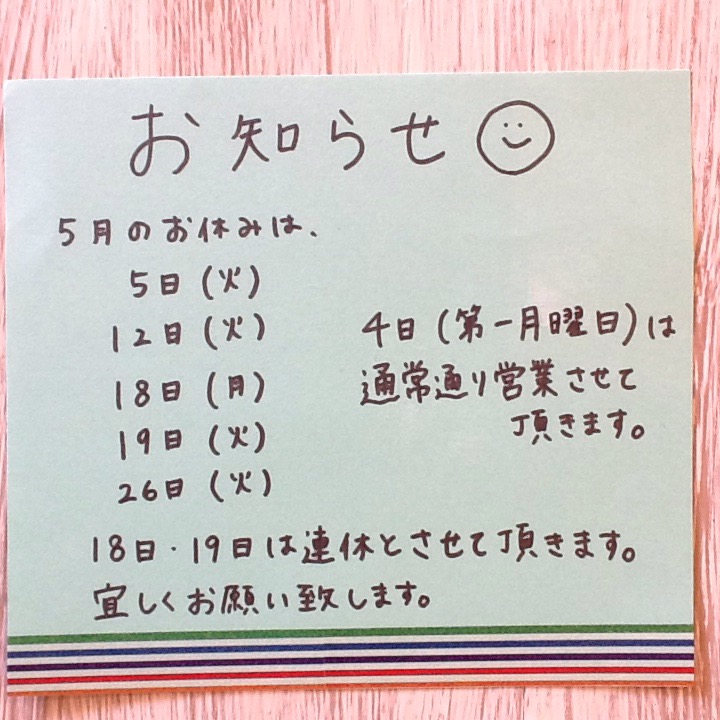 お知らせ
5月のお休みは、
5日(火)
12日(火)
18日(月)
19日(火)
26日(火)
4日(第一月曜日)は
通常通り営業させて
頂きます。
18日・19日は連休とさせて頂きます。
宜しくお願い致します。